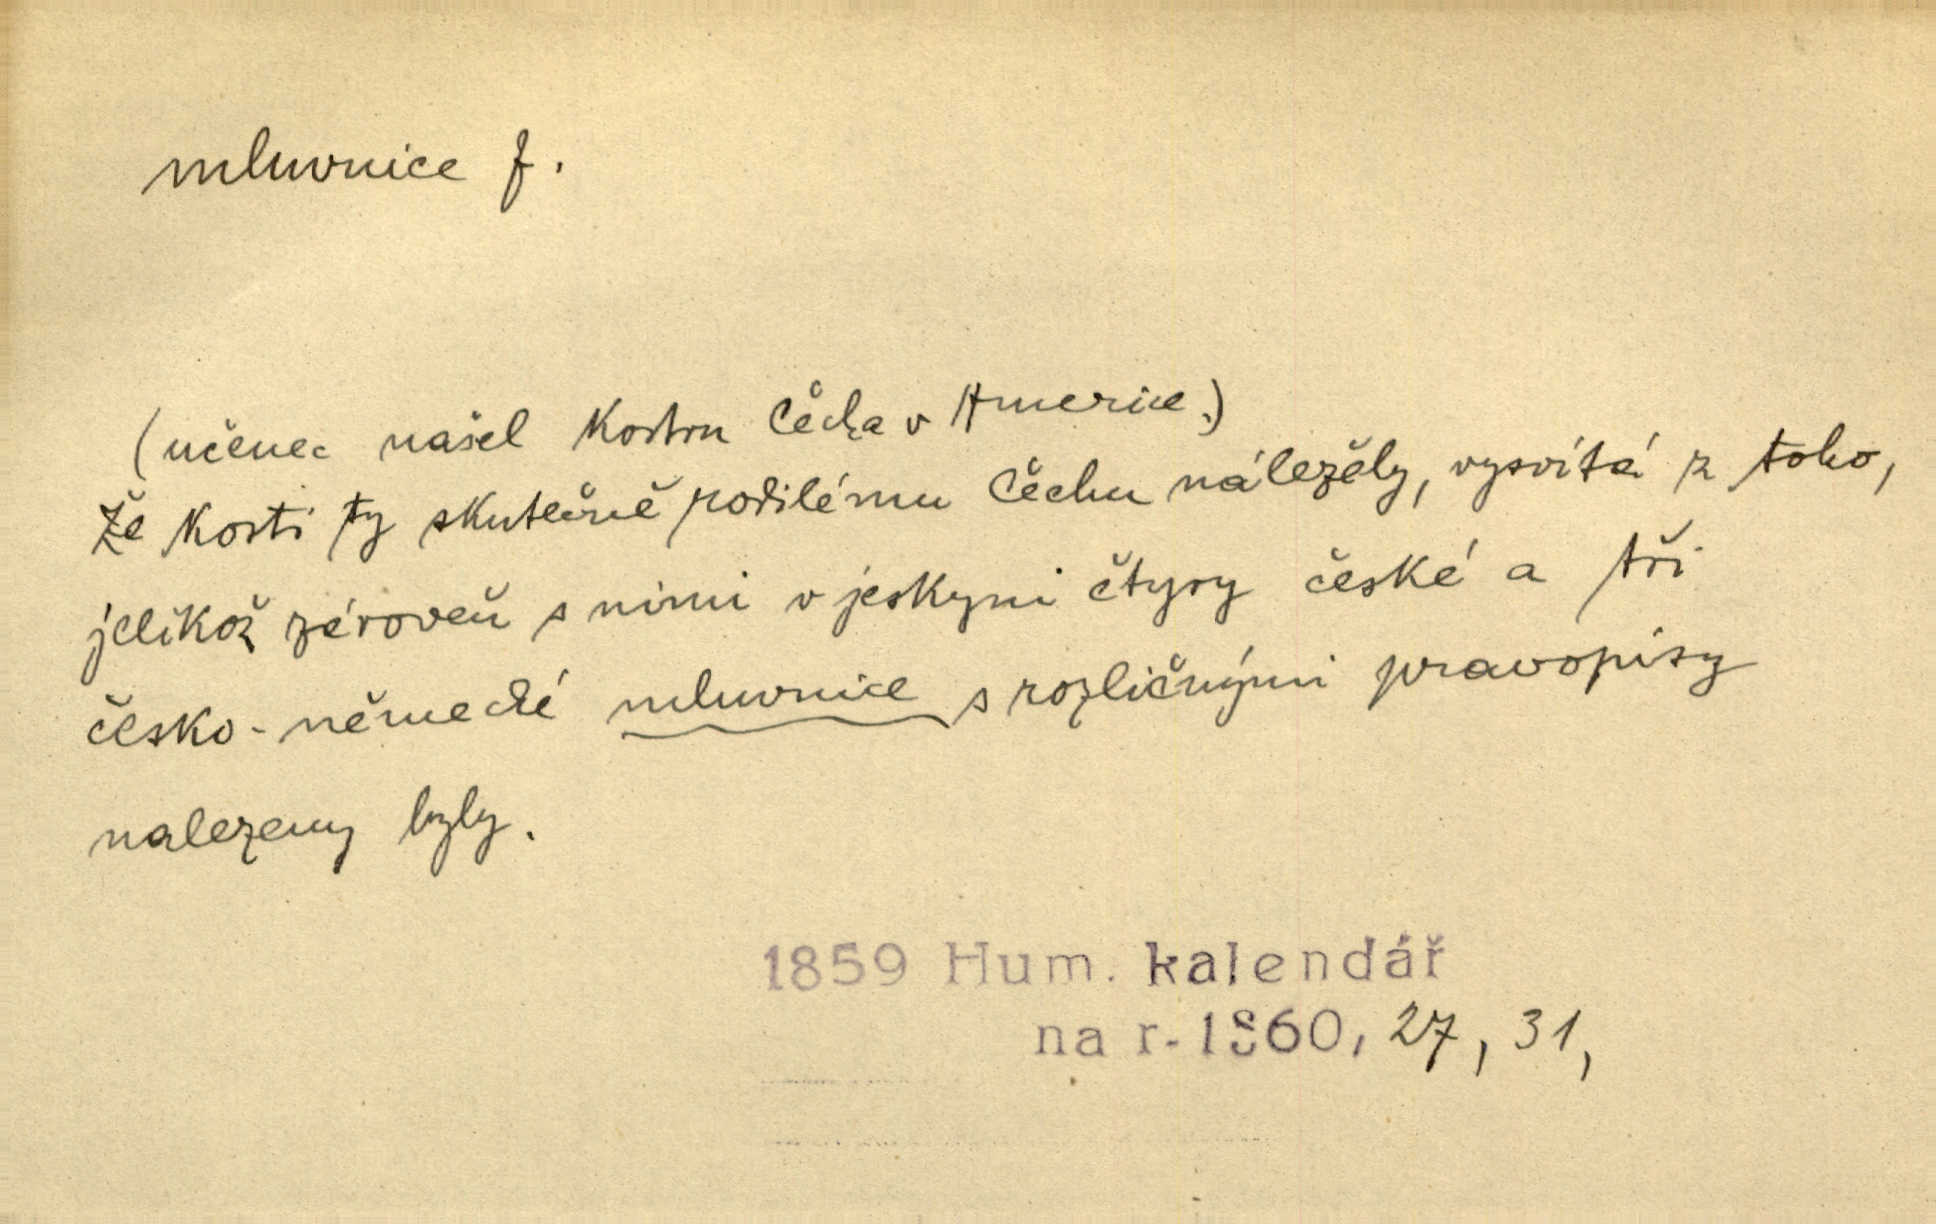 mluvnice f.
(učenec našel kostru Čecha v Americe.)
Že kosti ty skutečně rodilému Čechu náležely, vysvítá z toho,
jelikož zároveň s nimi v jeskyni čtyry české a tři
česko-německé mluvnice s rozličnými pravopisy
nalezeny byly.
1859 Hum. kalendář
na r. 1860, 27, 31,